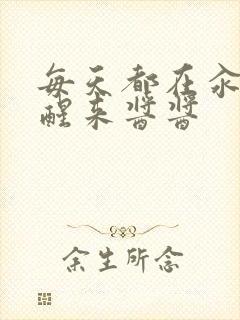 每天都在汆
醒来酱酱
余生所念